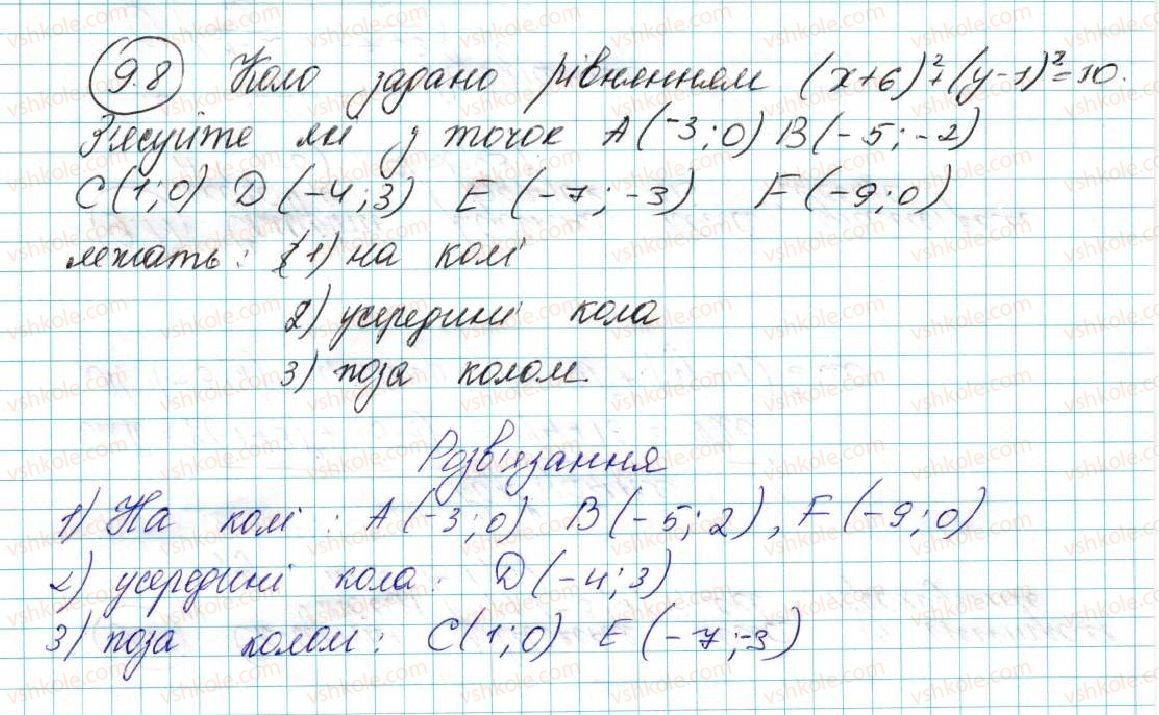 9.8 Коло задано рівнянням (x+6)²+(y-1)²=10.
З'ясуйте які з точок A(-3;0) B(-5;-2)
C(1;0) D(-4;3) E(-7;-3) F(-9;0)
лежать: 1) на колі
2) усередині кола
3) поза колом.
Розв'язання
1) На колі: A(-3;0) B(-5;2), F(-9;0)
2) усередині кола: D(-4;3)
3) поза колом: C(1;0) E(-7;-3)
vshkole.com